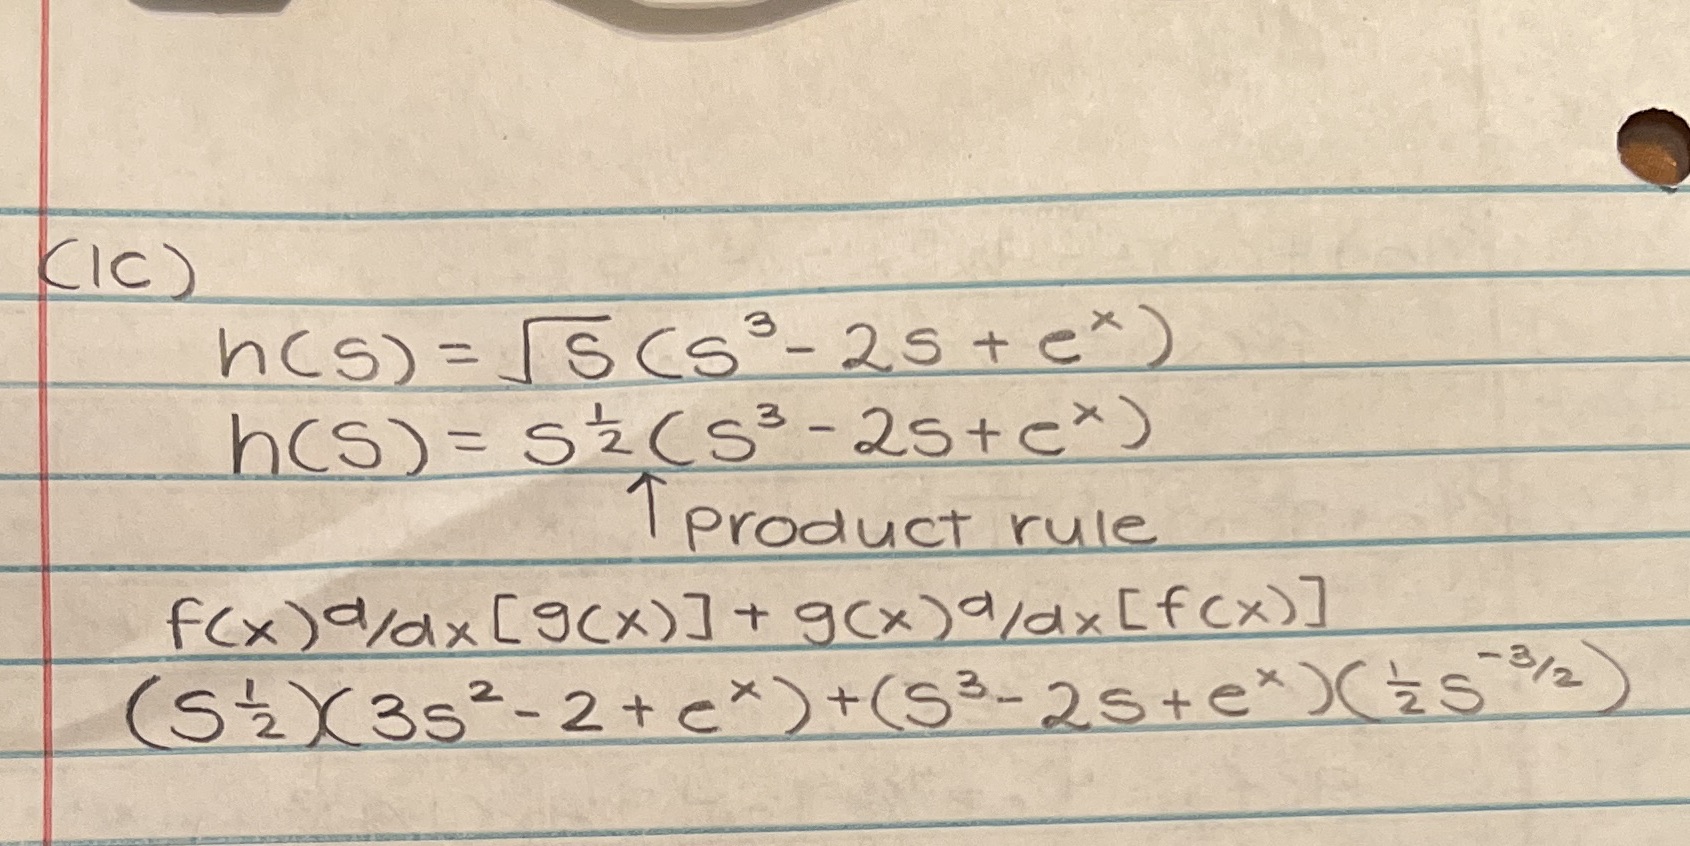 (1C)
h(s) = √s (s³ - 2s + eˣ)
h(s) = s^½ (s³ - 2s + eˣ)
↑ product rule
f(x) d/dx [g(x)] + g(x) d/dx [f(x)]
(s^½)(3s² - 2 + eˣ) + (s³ - 2s + eˣ)(½ s^-3/2)